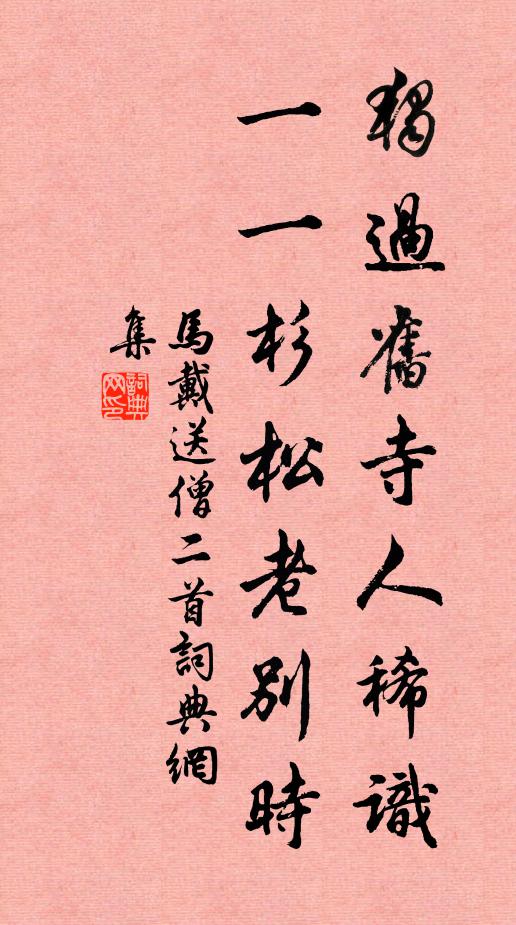 獨過舊寺人稀識
一一杉松老別時
馬戴送僧二首詞典網
集
詞典網印